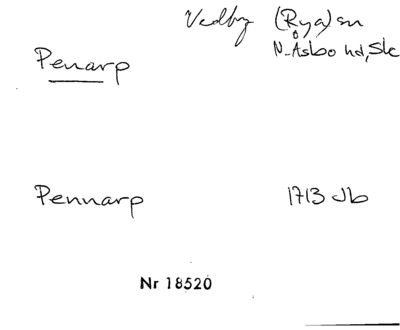 Vedby (Rya) sn
N. Åsbo hd, Sk
Penarp
Pennarp 1713 Jb
Nr 18520